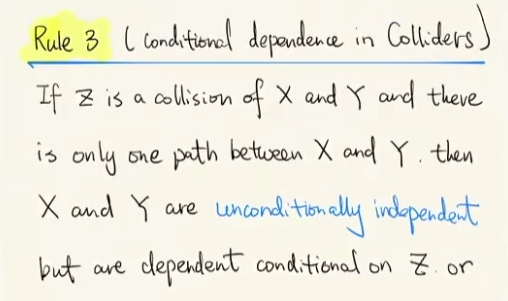 Rule 3 (conditional dependence in Colliders)
If Z is a collision of X and Y and there
is only one path between X and Y. then
X and Y are unconditionally independent
but are dependent conditional on Z. or